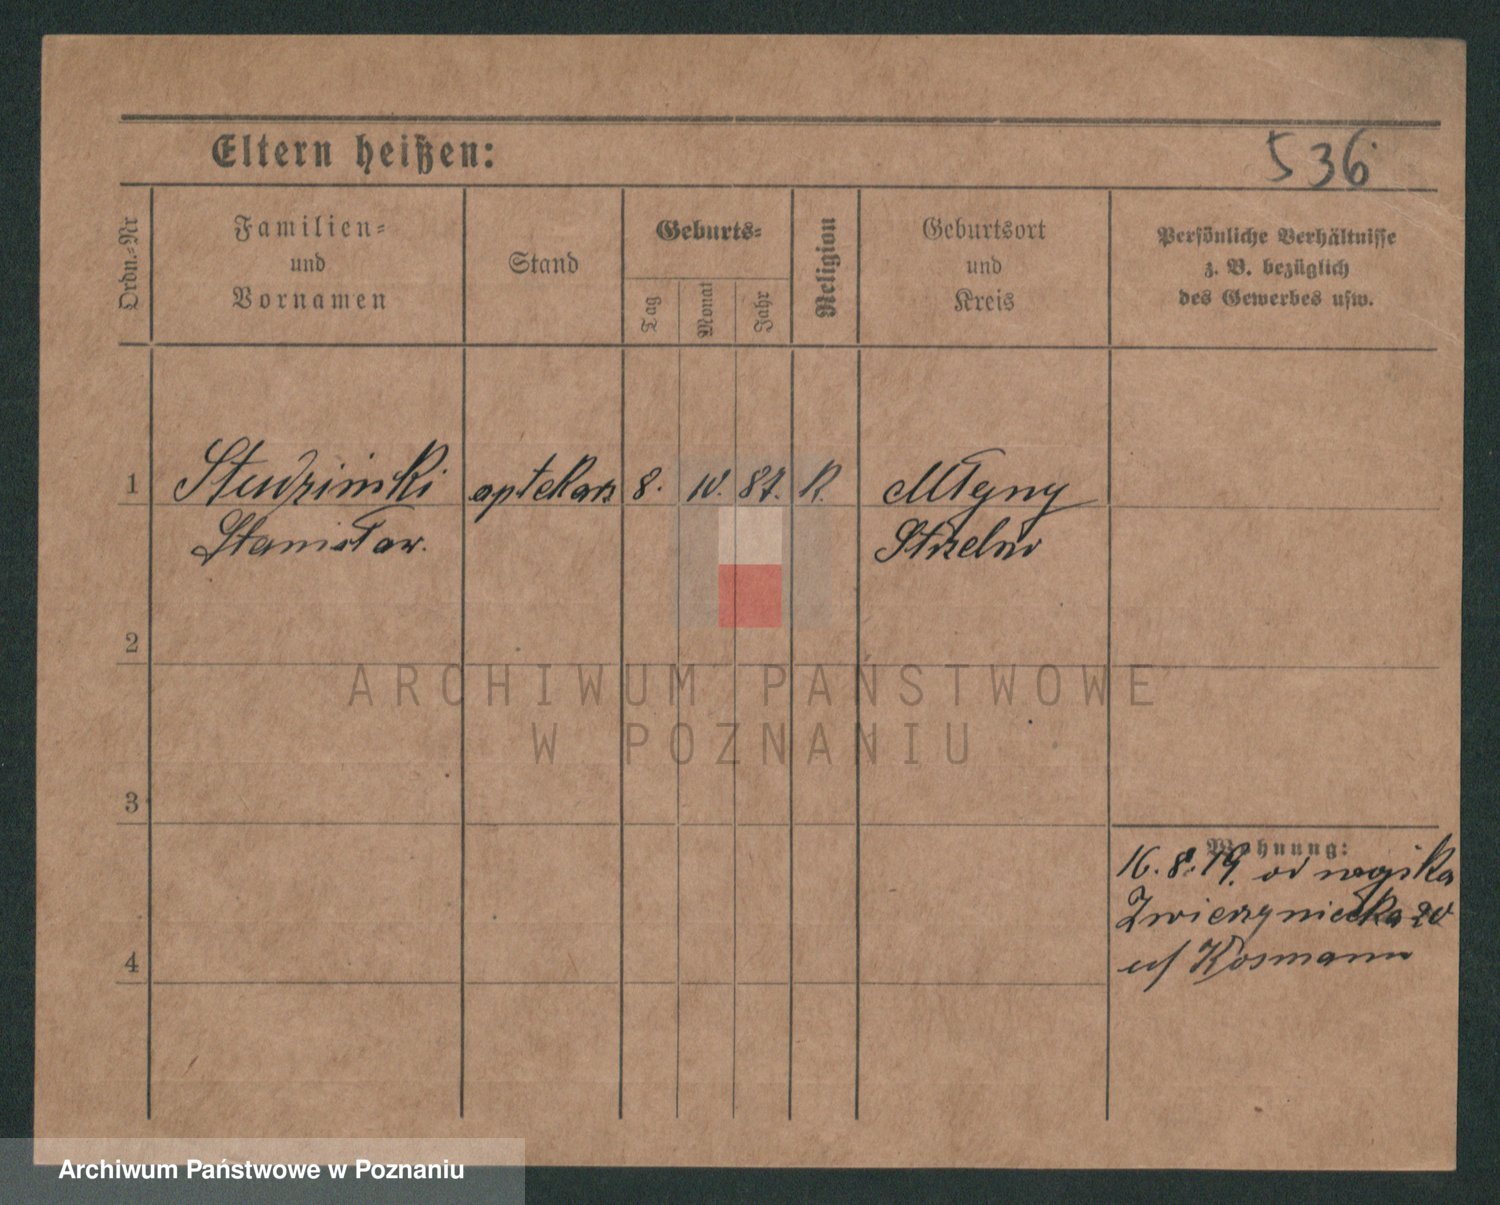 Eltern heißen:
536
Ordn.-Nr
Familien-
und
Vornamen
Stand
Geburts-
Tag
Monat
Jahr
Religion
Geburtsort
und
Kreis
Persönliche Verhältnisse
z. B. bezüglich
des Gewerbes usw.
1
Studzinski
aptekarz
8.
10.
87.
R.
Młyny
Stanisław.
Strzelno
2
3
4
Wohnung:
16.8.19. od wojska
Zwierzyniecka 20
u/ Kosmann
ARCHIWUM PAŃSTWOWE
W POZNANIU
Archiwum Państwowe w Poznaniu